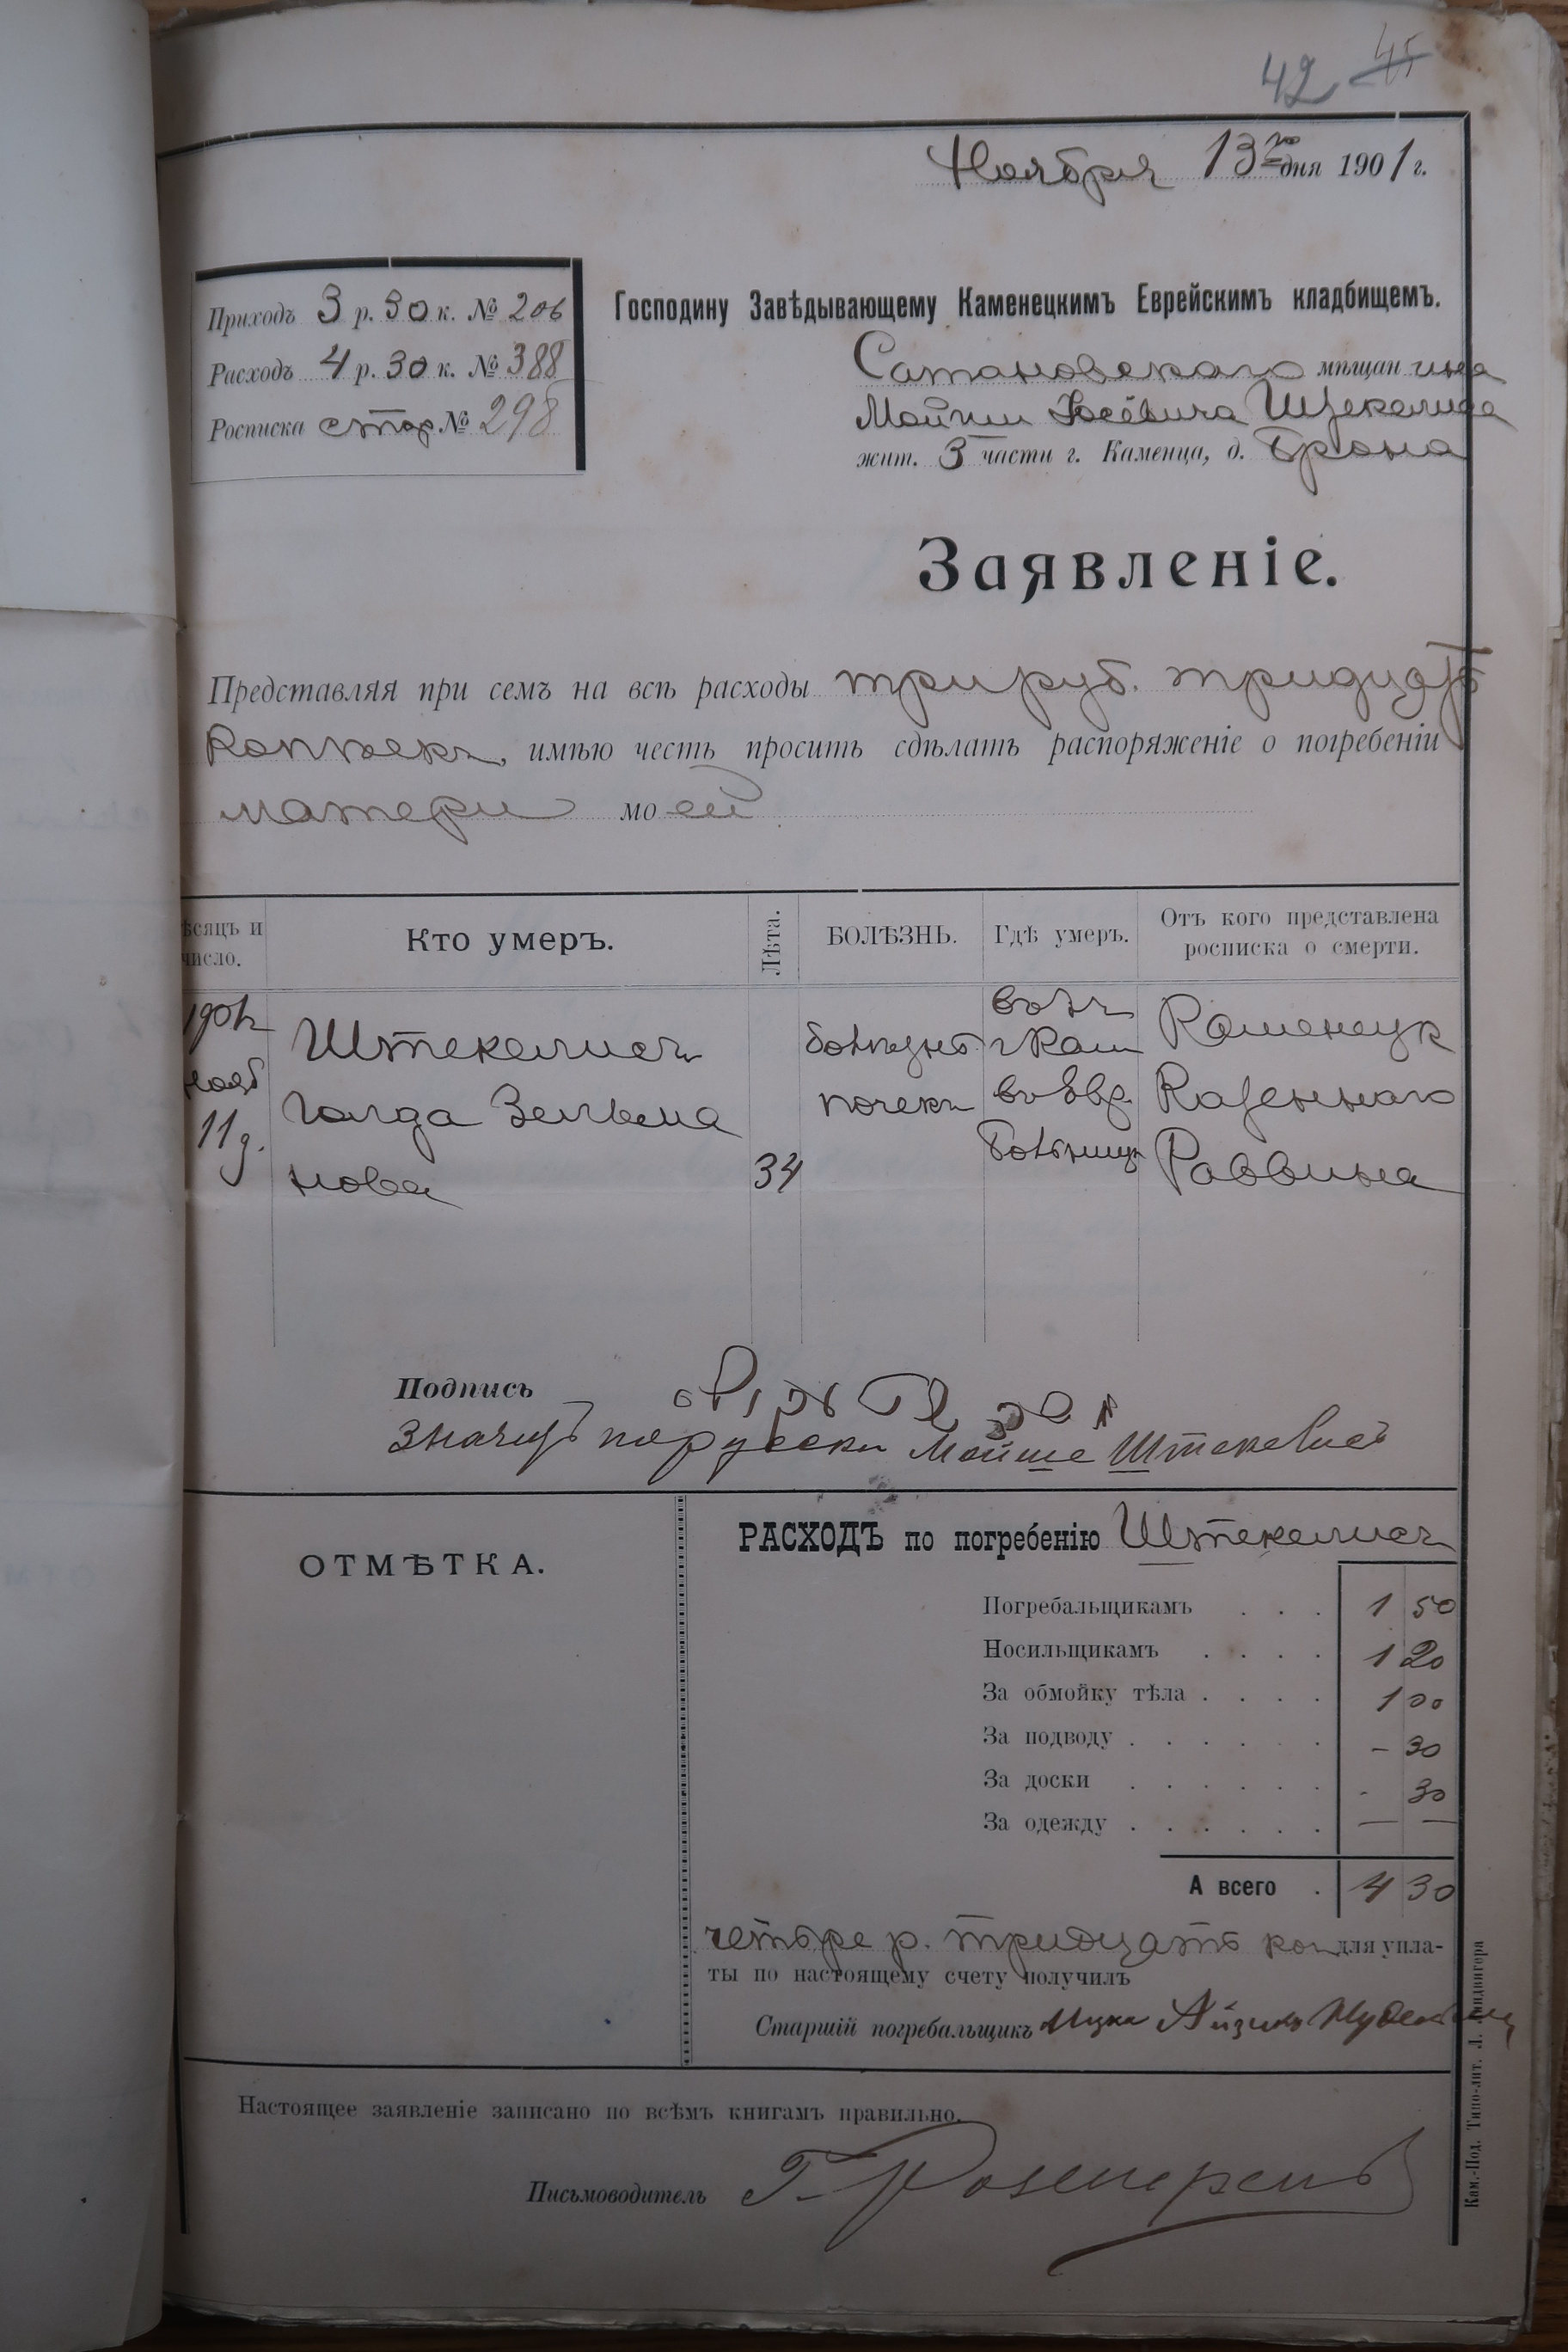 42 45
Ноября 13го дня 1901 г.
Приходъ 3 р. 30 к. № 206
Расходъ 4 р. 30 к. № 388
Росписка стор № 298
Господину Завѣдывающему Каменецкимъ Еврейскимъ кладбищемъ.
Сатановскаго мѣщанина
Мойши Іосевича
жит. 3 части г. Каменца, д. Брона
Заявленіе.
Представляя при семъ на всѣ расходы три руб. тридцать
копѣекъ, имѣю честь просить сдѣлать распоряженіе о погребеніи
матери моей
ѣсяцъ и число.
Кто умеръ.
Лѣта.
БОЛѢЗНЬ.
Гдѣ умеръ.
Отъ кого представлена росписка о смерти.
1901г
нояб
11 д.
Штекелисъ
Голда Зельма
нова
34
болѣзнь
почекъ
г Кам
въ Евр.
больницѣ
Каменецк
Казеннаго
Раввина
Подпись
значитъ порусски Мойше Штекелисъ
ОТМѢТКА.
РАСХОДЪ по погребенію Штекелисъ
Погребальщикамъ . . . 1 50
Носильщикамъ . . . . 1 20
За обмойку тѣла . . . . 1 00
За подводу . . . . . . – 30
За доски . . . . . . - 30
За одежду . . . . . . — —
А всего . 4 30
четыре р. тридцать коп для упла-
ты по настоящему счету получилъ
Старшій погребальщикъ Ицка Айзикъ
Настоящее заявленіе записано по всѣмъ книгамъ правильно.
Письмоводитель Г. Розенкранцъ
Кам.-Под. Типо-лит. Л.